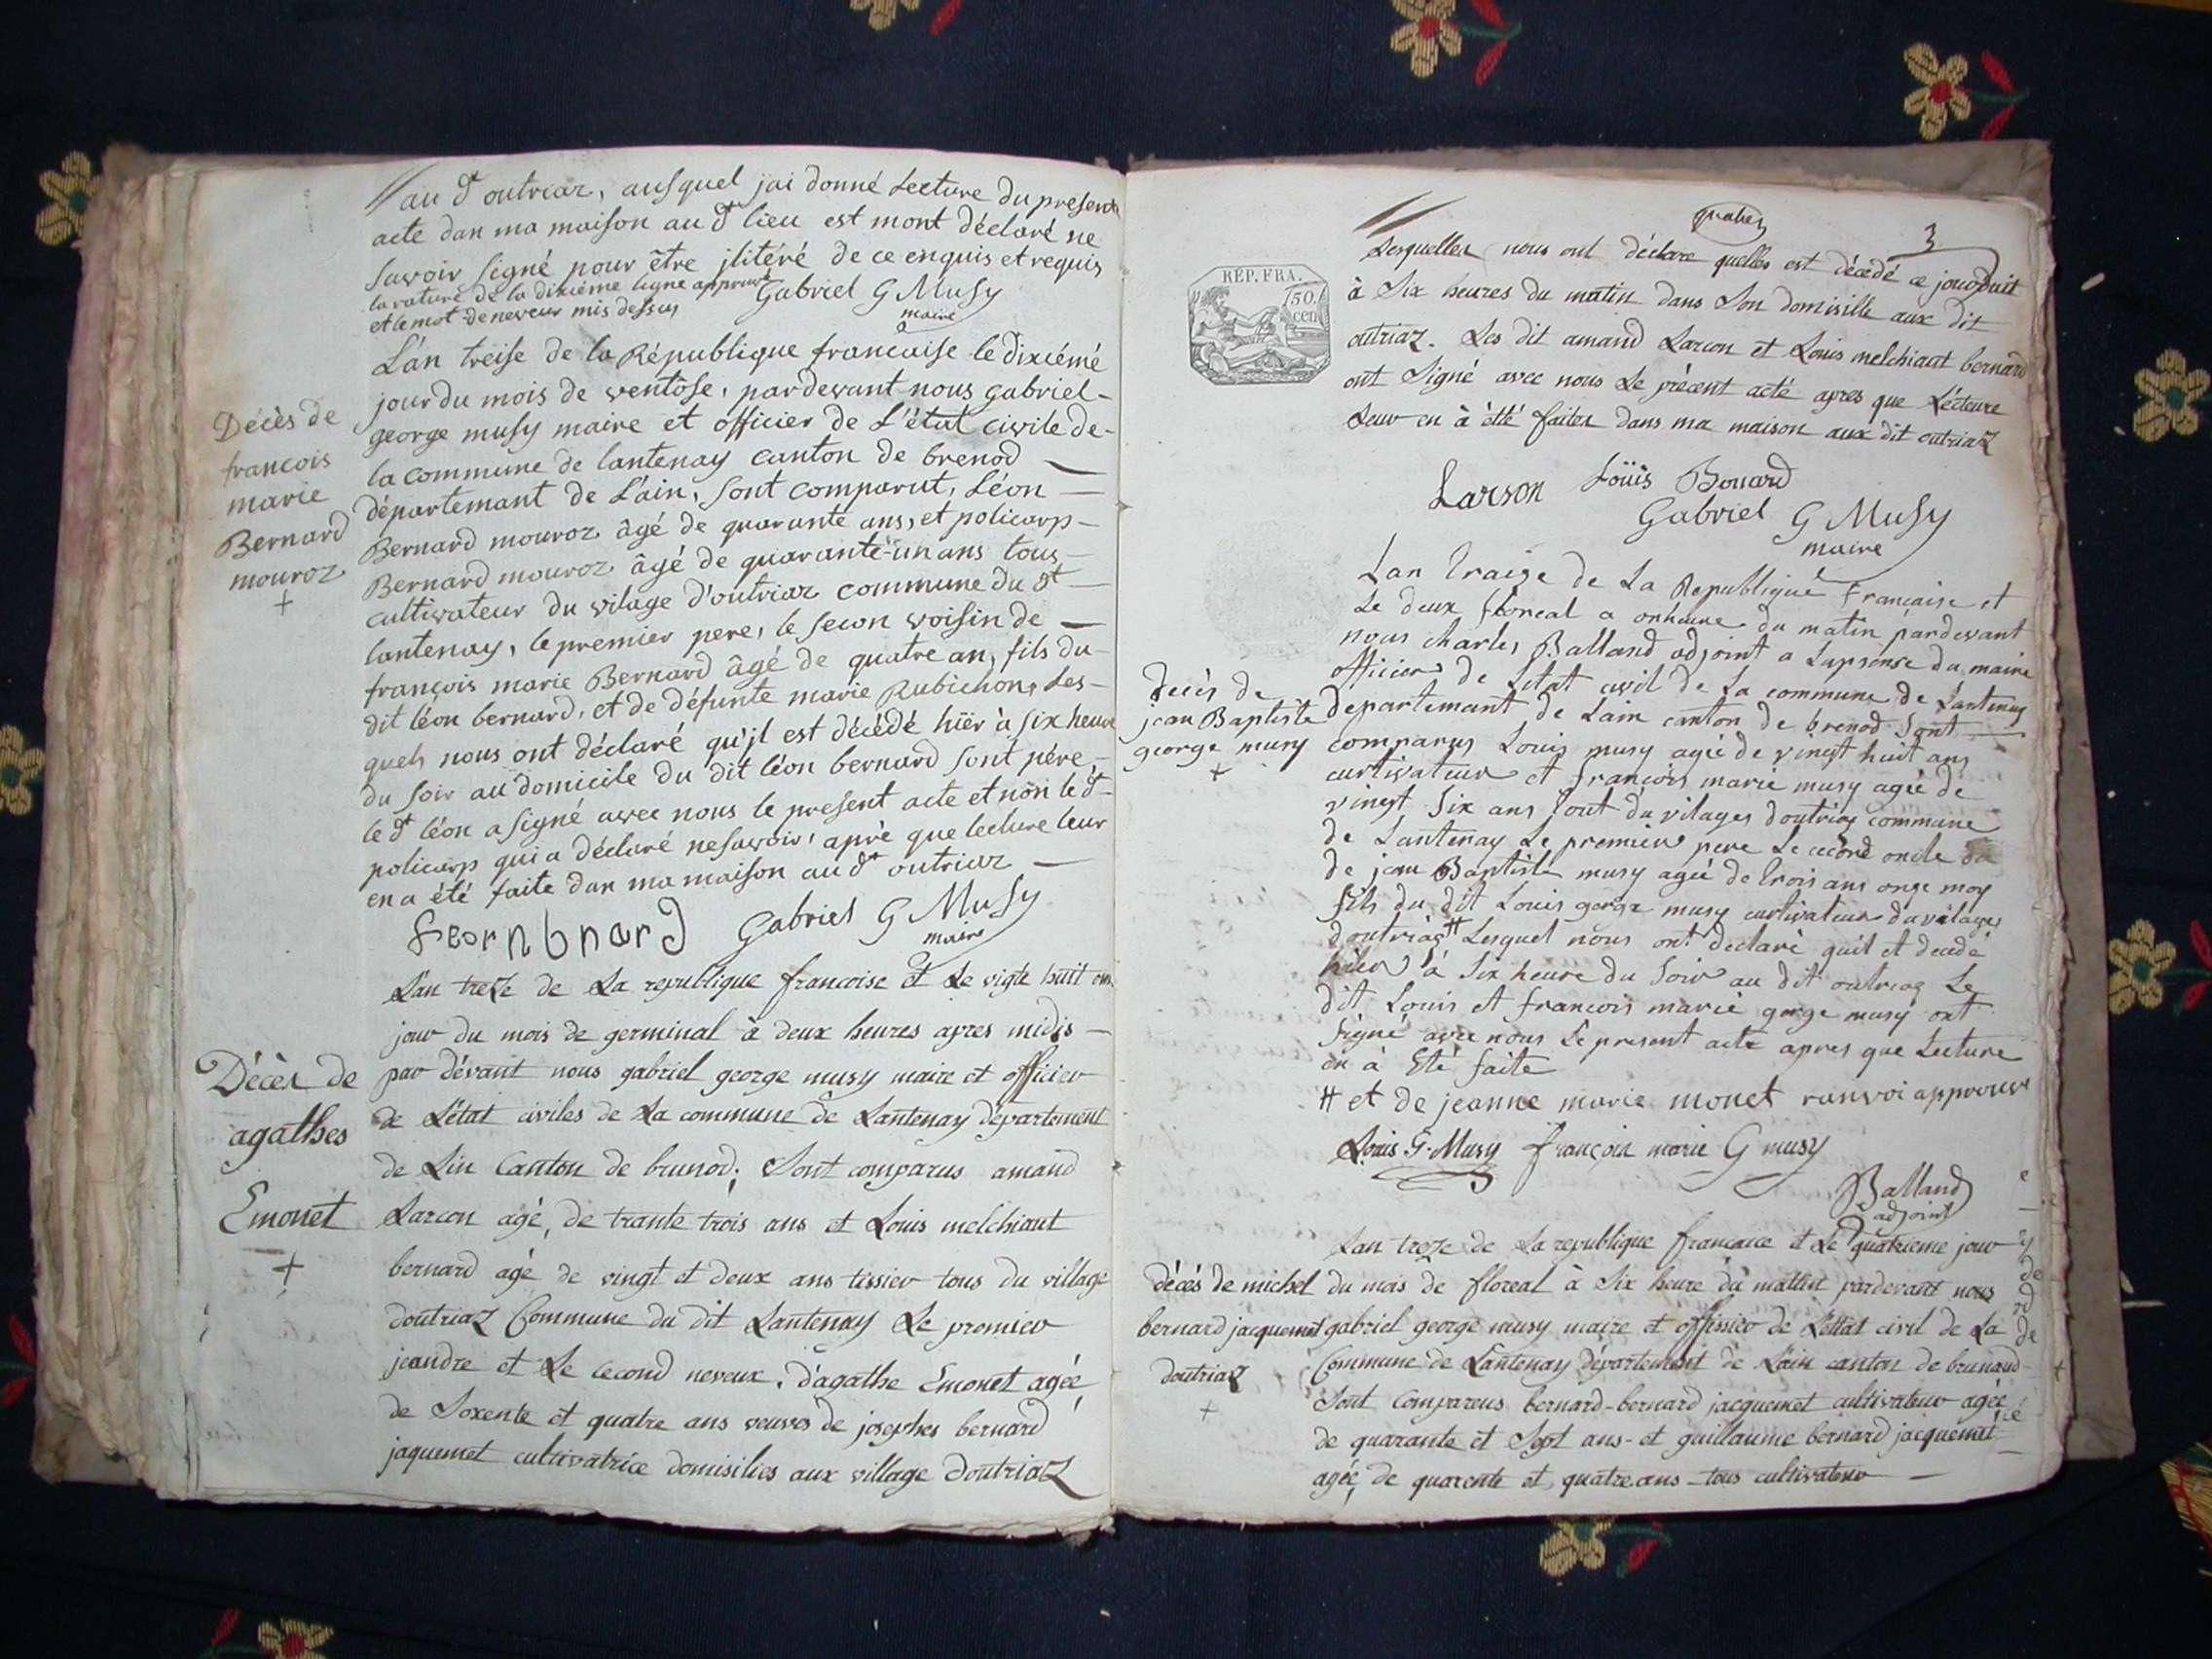 au dt outriaz, ausquel jai donné Lecture du present
acte dan ma maison au dt lieu est mont déclaré ne
savoir signé pour être jlitéré de ce enquis et requis
la rature de la dixiéme ligne approuvé
et le mot de neveur mis dessus
Gabriel G Musy
maire
Décès de
francois
marie
Bernard
mouroz
+
L'án treise de la République francaise le dixiémé
jour du mois de ventôse, pardevant nous gabriel-
george musy maire et officier de L'état civile de-
la commune de lantenay canton de brenod —
départemant de L'ain, sont comparut, Léon —
Bernard mouroz âgé de quarante ans, et policarp-
Bernard mouroz âgé de quarante-un ans tous-
cultivateur du vilage d'outriaz commune du dt —
lantenay, le premier pere, le secon voisin de —
françois marie Bernard âgé de quatre an, fils du-
dit léon bernard, et de défunte marie Rubichon, Les-
quels nous ont déclaré qu'jl est décédé hïer à six heure
du soir au domicile du dit léon bernard sont pére,
le dt léon a signé avec nous le present acte et non le dt-
policarp qui a déclaré ne savoir, apré que lecture leur
en a été faite dan ma maison au dt outriaz —
Leorn bnard Gabriel G Musy
maire
Décès de
agathes
Emonet
+
L'an treze de La republique francoise et Le vigte huit em
jour du mois de germinal à deux heures apres midis —
par dévant nous gabriel george musy maire et officier
de L'état civiles de La commune de Lantenay département
de Lin Canton de brunod; Sont comparus amand
Larcon agé, de trante trois ans et Louis melchiaut
bernard agé de vingt et deux ans tissier tous du village
doutriaz Commune du dit Lantenay Le premier
jeandre et Le cecond neveux, d'agathe Emonet agéé
de Soxente et quatre ans veuves de josephes bernard
jaquemet cultivatrice domisilies aux village doutriaz
quatres
3
RÉP. FRA.
50.
cen
Lesquelles nous ont déclare quelles est décédé ce jourduit
à Six heures du matin dans Son domisille aux dit
outriaz. Les dit amand Larcon et Louis melchiaut bernard
ont Signé avec nous Le précent acté apres que Lécteure
Leur en à étté faites dans ma maison aux dit outriaz
Larson Loüis Bonard
Gabriel G Musy
maire
Decès de
jean Baptiste
george musy
+
Lan traize de La Republique francaise et
Le deux floreal a onheure du matin pardevant
nous charles Balland adjoint a Lapsense du maire
officier de Letat civil de La commune de Lantenay
departemant de Lain canton de brenod Sont
comparus Louis musy agée de vingt huit ans
curtivateur et françois marie musy agée de
vingt Six ans tout du vilages doutriaz commune
de Lantenay Le premier pere Le cecond oncle de
de jean Baptiste musy agée de trois ans onze moy
fils du dit Louis gorge musy curtivateur du vilages
doutriaz # Lesquel nous ont declaré quil et decedé
hier à Six heure du Soir au dit outriaz Le
dit Louis et francois marie gorge musy ont
Signé avec nous Le present acte apres que Lecture
en à Eté faite
# et de jeanne marie monet ranvoi approuvé
Louis G. Musy françois marie G musy
Balland
adjoint
décés de michel
bernard jacquemet
doutriaz
+
Lan treze de La republique francaice et Le quatrieme jour
du mois de floreal à Six heure du mattint pardevant nous
gabriel george musy maire et offissier de L'ettat civil de La
Commune de Lantenay département de L'ain canton de brunaud-
Sont Compareus bernard-bernard jacquemet cultivateur agéé
de quarante et Sept ans- et guillaume bernard jacquemet-
agéé, de quarente et quatre ans - tous cultivateur —